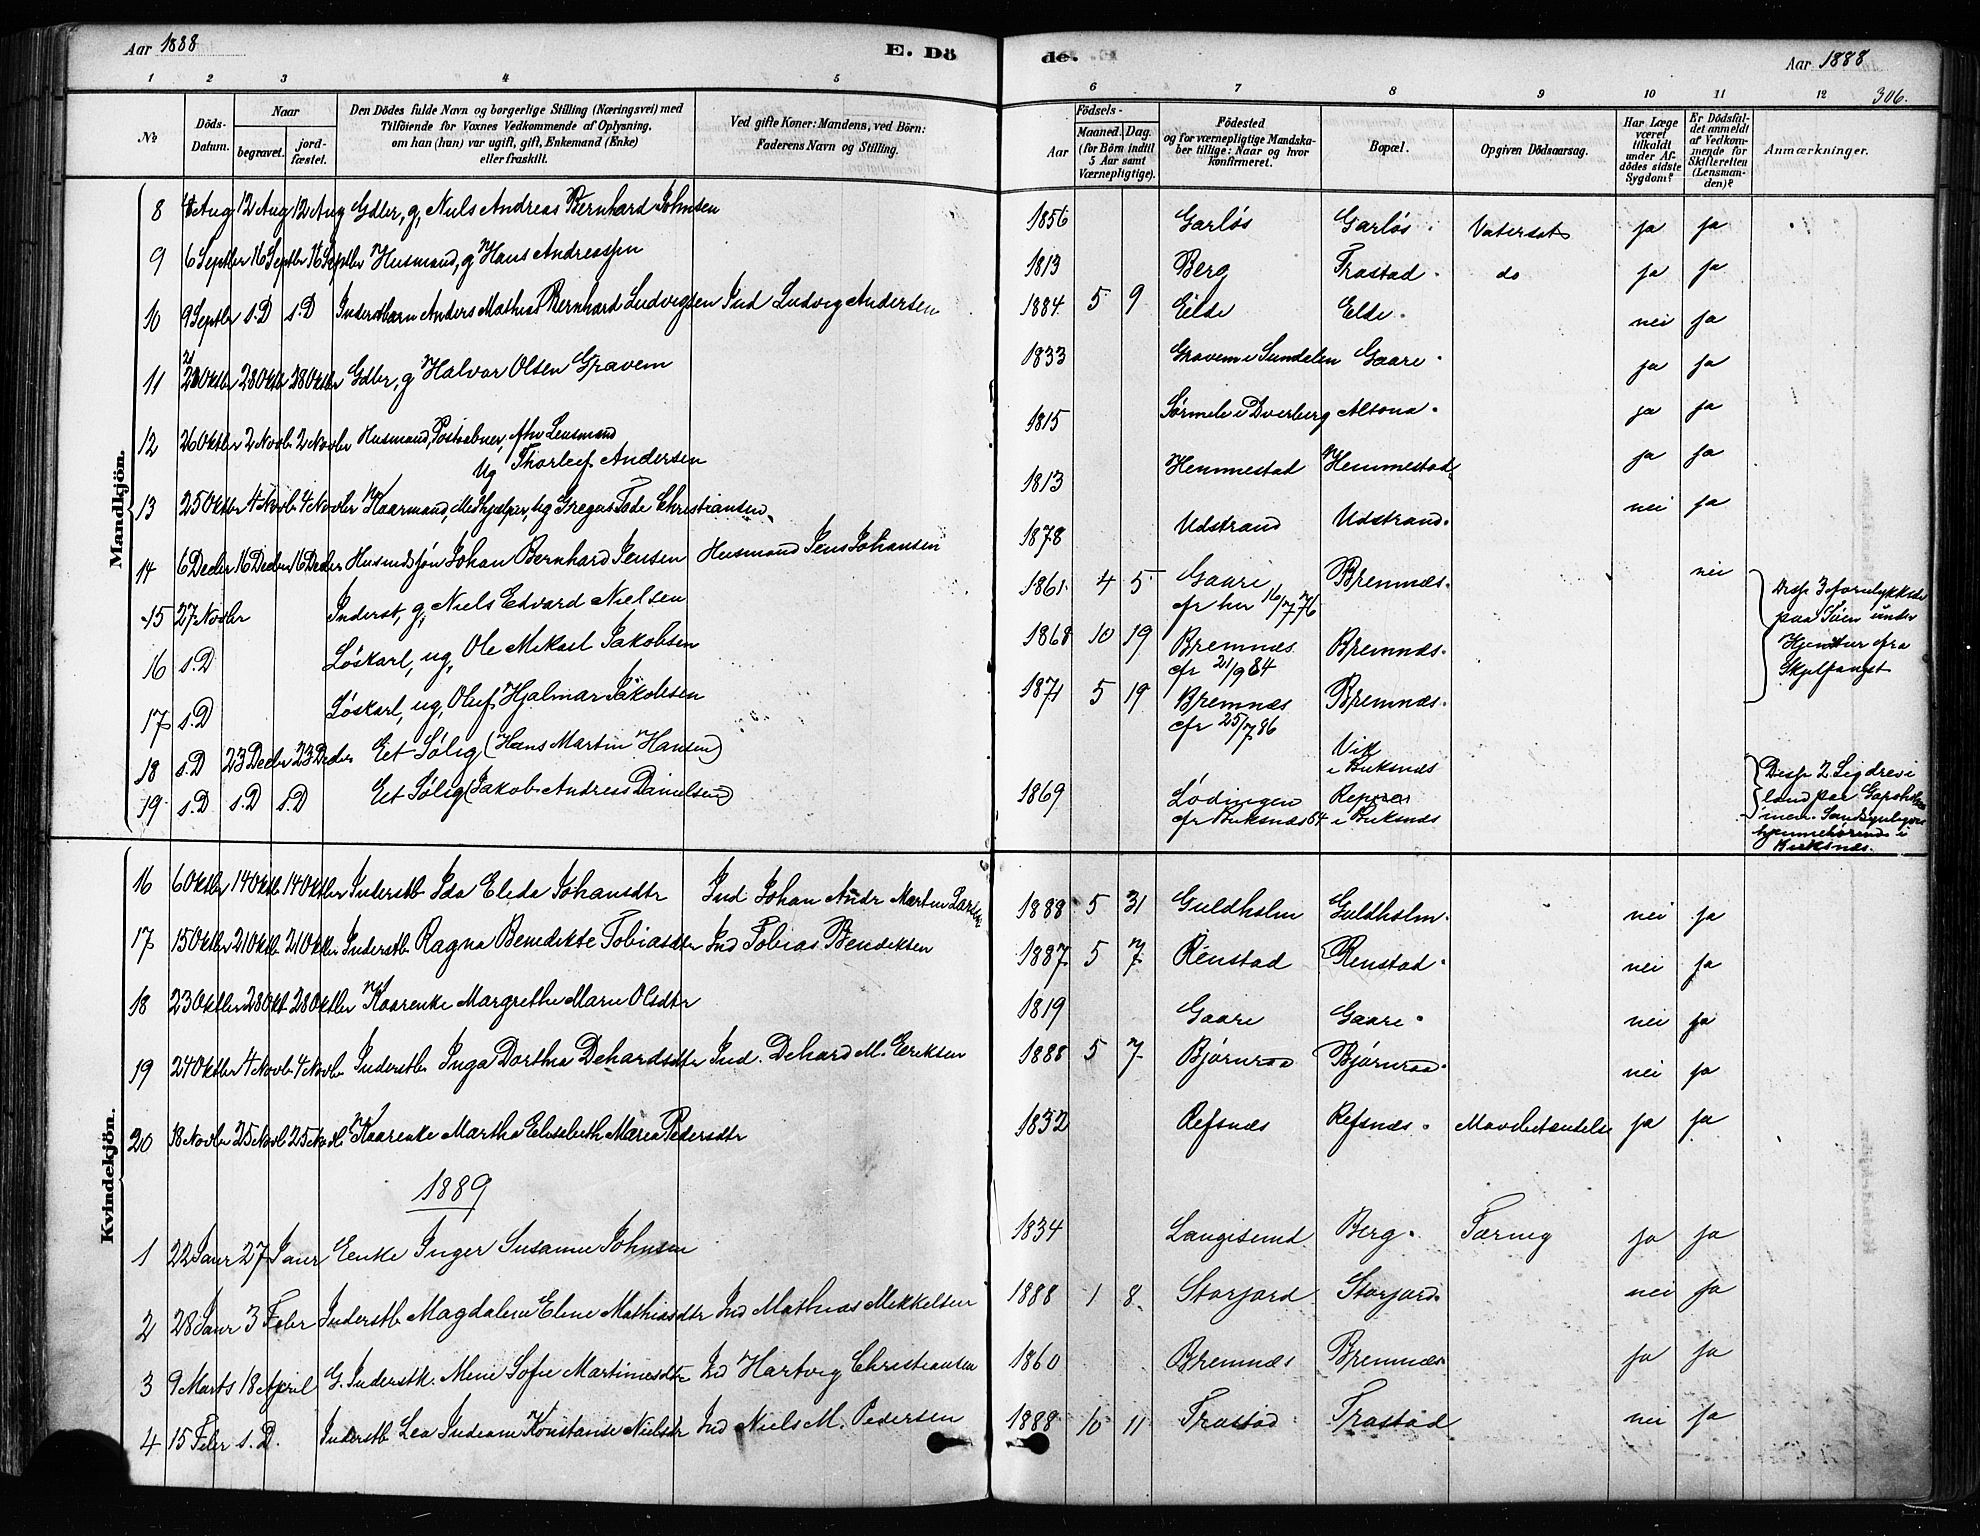 Aar 1888 E. Dö de. Aar 1888
1 2 3 4 5 6 7 8 9 10 11 12 306.
No
Döds-Datum.
Naar
begravet.
jord-fæstet.
Den Dödes fulde Navn og borgerlige Stilling (Næringsvei) med
Tilföiende for Voxnes Vedkommende af Oplysning,
om han (hun) var ugift, gift, Enkemand (Enke)
eller fraskilt.
Ved gifte Koner: Mandens, ved Börn:
Faderens Navn og Stilling.
Födsels-
Aar
Maaned. Dag.
(for Börn indtil
5 Aar samt
Værnepligtige).
Födested
og for værnepligtige Mandska-
ber tillige: Naar og hvor
konfirmeret.
Bopæl.
Opgiven Dödsaarsag.
Har Læge
været
tilkaldt
under Af-
dödes sidste
Sygdom?
Er Dödsfal-
det anmeldt
af Vedkom-
mende for
Skifteretten
(Lensman-
den)?
Anmærkninger.
Mandkjön.
8 4 Aug 12 Aug 12 Aug Gdbr, g, Nils Andreas Bernhard Johnsen 1856 Garløs Garløs. Vatersot ja ja
9 6 Septbr 16 Septbr 16 Septbr Husmand, g Hans Andreassen 1813 Berg Trastad. do ja ja
10 9 Septbr s.D s.D Inderstbarn Anders Mathias Bernhard Ludvigsen Ind Ludvig Andersen 1884 5 9 Elde Elde. nei ja
11 21 Oktbr 28 Oktbr 28 Oktbr Gdbr, g Halvor Olsen Gravem 1833 Gravem i Sundalen Gaare. ja ja
12 26 Oktbr 2 Novbr 2 Novbr Husmand, Postaabner, fhv Lensmand
Ug Thorleif Andersen 1815 Sørmele i Dverberg Altona. ja ja
13 25 Oktbr 4 Novbr 4 Novbr Kaarmand, Medhjælper, ug Gregus Tode Christiansen 1813 Hemmestad Hemmestad ja ja
14 6 Decbr 16 Decbr 16 Decbr Husmdssøn Johan Bernhard Jensen Husmand Jens Johansen 1878 Udstrand Udstrand. nei ja
15 27 Novbr Inderst, g, Niels Edvard Nielsen 1861 4 5 Gaare
cfr her 16/7 76 Bremnæs. nei
16 s.D Løskarl, ug, Ole Mikael Jakobsen 1868 10 19 Bremnæs
cfr 21/9 84 Bremnæs.
17 s.D Løskarl, ug, Oluf Hjalmar Jakobsen 1871 5 19 Bremnæs
cfr 25/7 86 Bremnæs.
Disse 3 forulykkede
paa Søen under
Hjemtur fra
Skjelfangst
18 s.D 23 Decbr 23 Decbr Et Sølig (Hans Martin Hansen) Vik
i Buksnæs
19 s.D s.D s.D Et Sølig (Jakob Andreas Danielsen) 1869 Lødingen
cfr Buksnæs 64 i Buksnæs
Disse 2 Lig drev i
land paa
inen. Sandsynligvis
hjemmehørende i
Buksnæs.
Kvindekjön.
16 6 Oktbr 14 Oktb 14 Oktbr Inderstb Ida Elida Johansdtr Ind Johan Andr Martin Larsen 1888 5 31 Guldholm Guldholm. nei ja
17 15 Oktbr 21 Oktb 21 Oktbr Inderstb Ragna Benedikte Tobiasdtr Ind Tobias Bendiksen 1887 5 7 Renstad Renstad. nei ja
18 23 Oktbr 28 Okt 28 Oktbr Kaarenke Margrethe Marie Olsdtr 1819 Gaare Gaare. nei ja
19 24 Oktbr 4 Novb 4 Novb Inderstb Inga Dorthea Dehardsdtr Ind. Dehard M. Eriksen 1888 5 7 Bjørnraa Bjørnraa. nei ja
20 18 Novbr 25 Novb 25 Novb Kaarenke Martha Elisabeth Maria Pedersdtr 1832 Refsnæs Refsnæs. Mavebetændelse ja ja
1889
1 22 Janr 27 Janr Enke Inger Susanne Johnsen 1834 Langesund Berg. Tæring ja ja
2 28 Janr 3 Febr Inderstb Magdalena Eline Mathiasdtr Ind Mathias Mikkelsen 1888 1 8 Storjord Storjord. nei ja
3 9 Marts 18 April G. Inderstk. Mine Sofie Martinusdtr Ind Hartvig Christiansen 1860 Bremnæs Bremnæs ja ja
4 15 Febr s.D. Inderstb Lea Indiane Konstanse Nielsdtr Ind Niels M. Pedersen 1888 10 11 Trastad Trastad nei ja